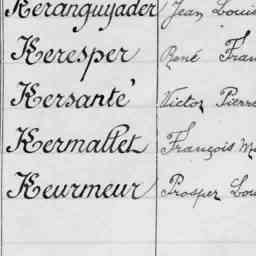 Keranguyader Jean Louis
Keresper René Fran
Kersanté Victor Pierre
Kermallet François M
Keurmeur Prosper Lou